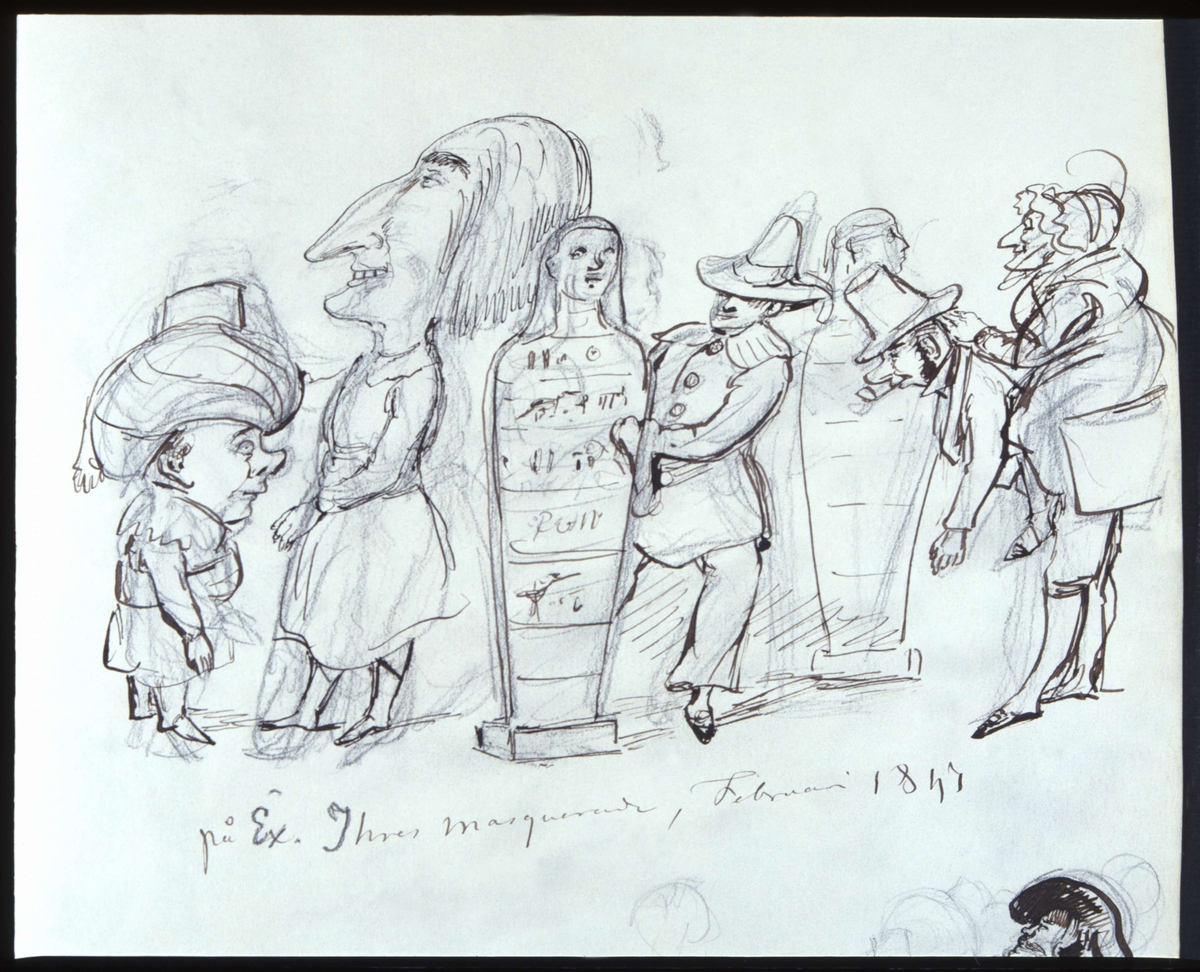 på Ex. Ihres masquerade, Februari 1847